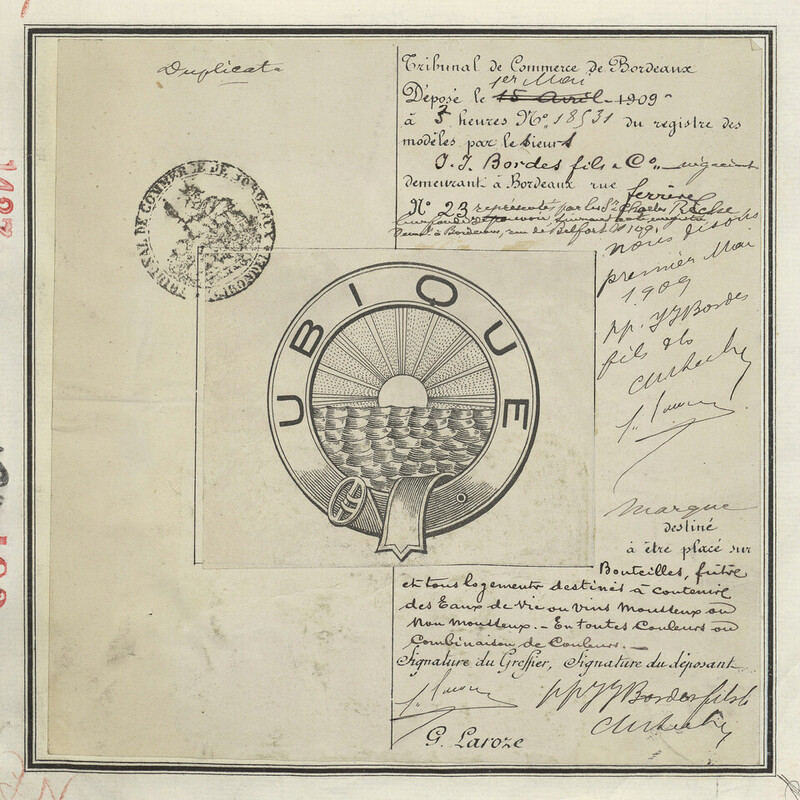 Duplicata
Tribunal de Commerce de Bordeaux
1er Mai
Déposé le 15 Avril 1909
à 3 heures No. 18531 du registre des
modèles par le Sieurs
J. J. Bordes fils & Co. négociant
demeurant à Bordeaux rue Ferrère
No 23 représentés par le Sr Charles
à Bordeaux, rue de Belfort No 109
TRIBUNAL DE COMMERCE DE BORDEAUX
(GIRONDE)
nous disons
premier Mai
1909
pp. JJ Bordes
fils & Co
UBIQUE
Marque
destiné
à être placé sur
Bouteilles, futire
et tous logements destinés à contenir
des Eaux de Vie ou vins Mousseux ou
Non Mousseux. - En toutes Couleurs ou
Combinaison de Couleurs. -
Signature du Greffier, Signature du déposant
pp JJ Bordes fils &
G. Laroze